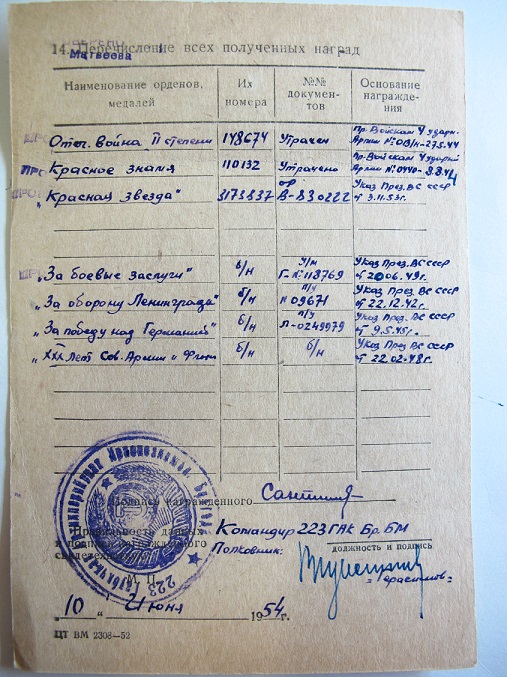 14. Перечисление всех полученных наград
Матвеева
Наименование орденов, медалей
Их номера
№№ документов
Основание награждения
Отеч. Война II степени 148674 Утрачен Пр. Войскам 4 ударн. Армии № 08/н-27.5.44
Красное знамя 110132 Утрачено Пр. Войскам 4 ударной Армии № 0440- 8.8.44
„Красная Звезда" 3173837 ор В-830222 Указ През. ВС СССР от 3.11.53г.
„За боевые заслуги" б/н у/м Г-№118769 Указ През. ВС СССР от 20.06.49г.
„За оборону Ленинграда" б/н п/у Н 09671 Указ През. ВС СССР от 22.12.42г.
„За победу над Германией" б/н п/у Л-0249979 Указ През. ВС СССР от 9.5.45г.
„XXX лет Сов. Армии и Флота б/н б/н Указ През. ВС СССР от 22.02.48г.
Подпись награжденного
Правильность данных
и подпись награжденного
свидетельствую
Командир 223 ГАК Бр. БМ
Полковник:
должность и подпись
=Герасимов=
М. П.
„10" Июня 1954г.
223 Гаубичная Артиллерийская Краснознаменная Бригада
ЦТ ВМ 2308—52